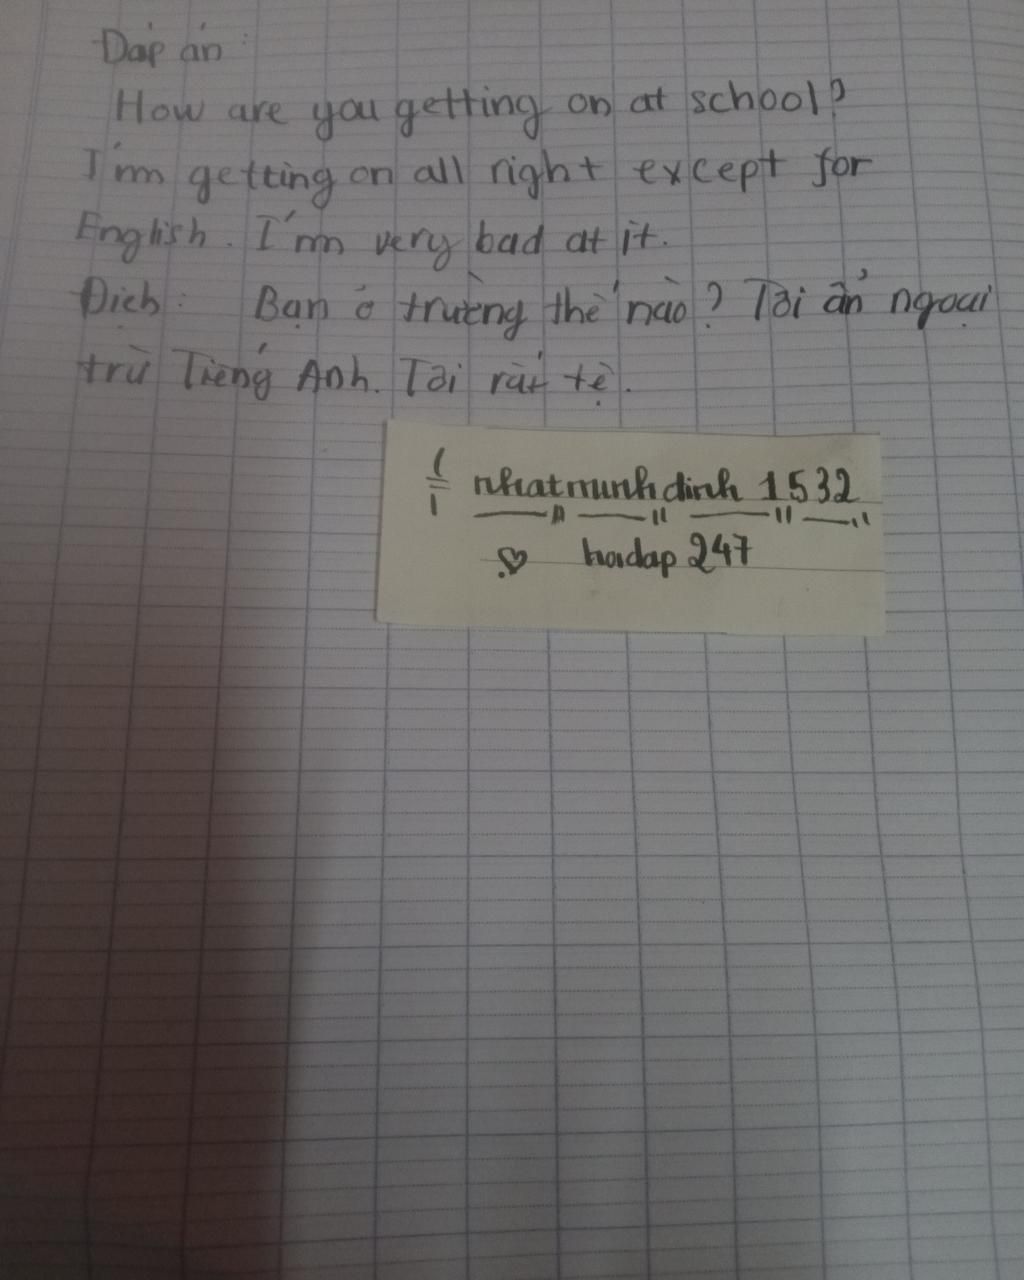 Đáp án:
How are you getting on at school?
I'm getting on all right except for
English. I'm very bad at it.
Dịch: Bạn ở trường thế nào? Tôi ổn ngoại
trừ Tiếng Anh. Tôi rất tệ.
nhatminhdinh 1532
hoidap 247